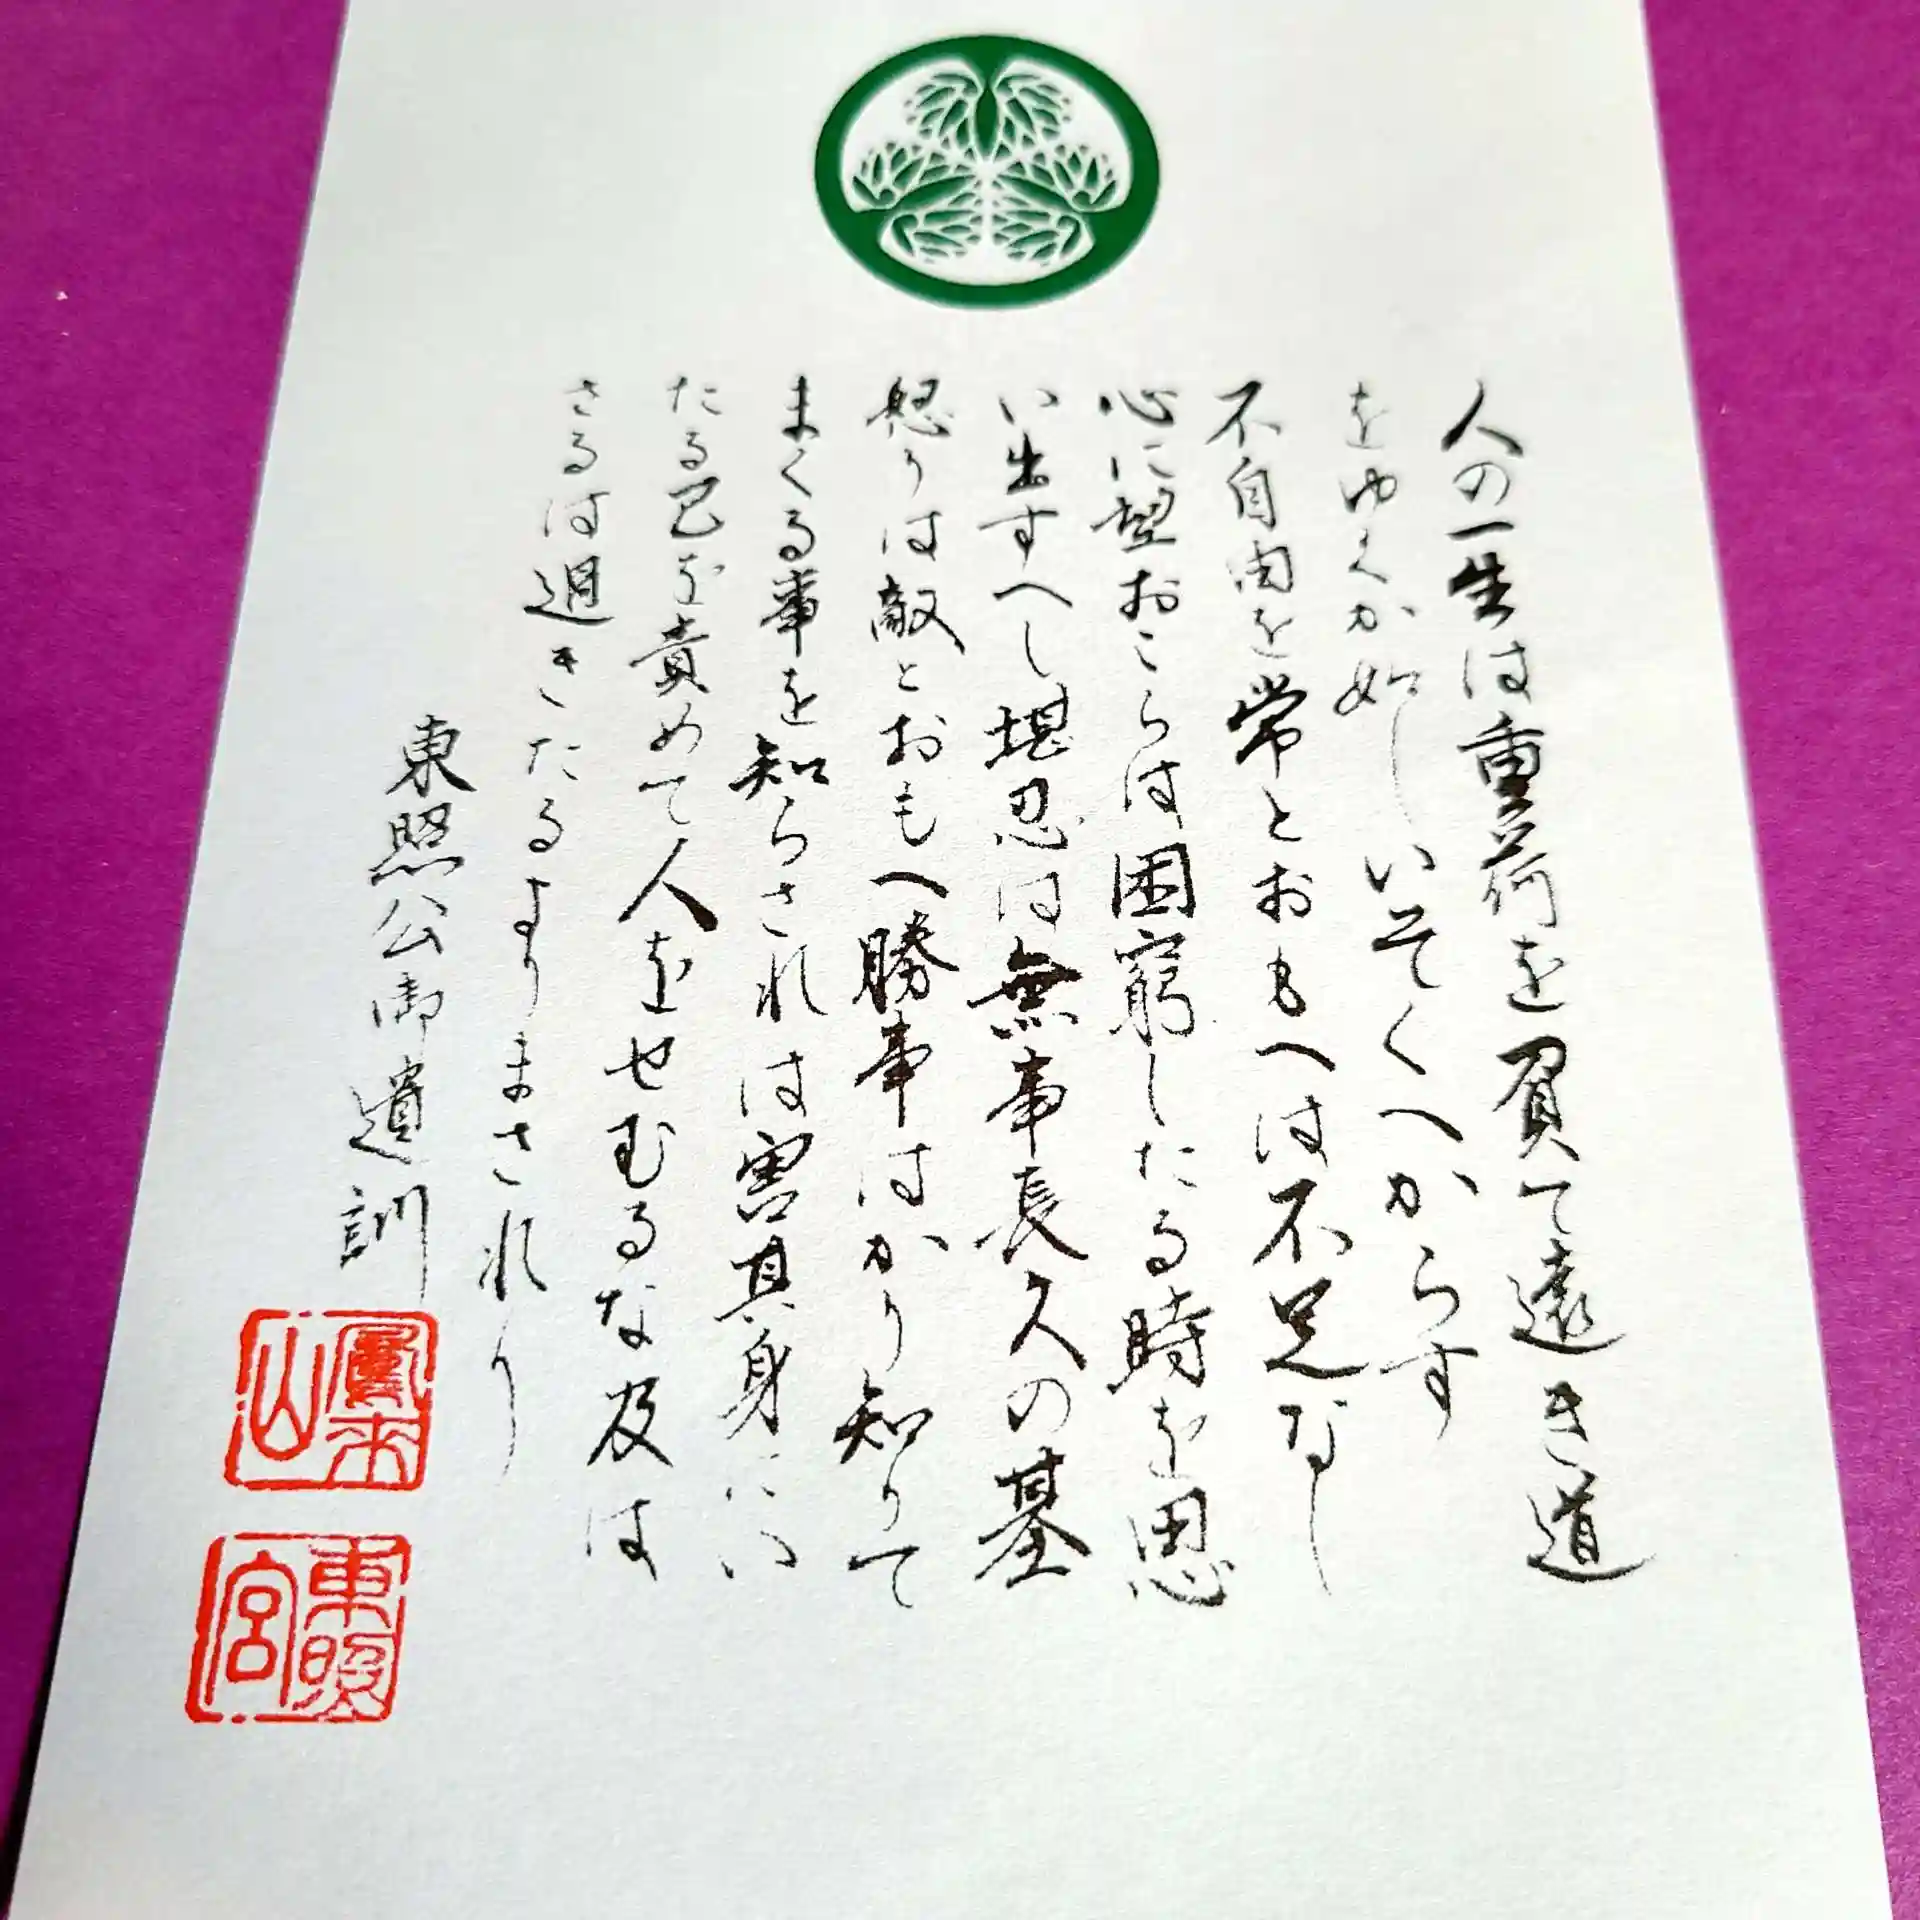 人の一生は重荷を負て遠き道
をゆくか如しいそくへからす
不自由を常とおもへは不足なし
心に望おこらは困窮したる時を思
い出すへし堪忍は無事長久の基
怒りは敵とおもへ勝事はかり知りて
まくる事を知らされは害其身にい
たる己を責めて人をせむるな及は
さるは過きたるよりまされり
東照公御遺訓
鳳来山
東照宮